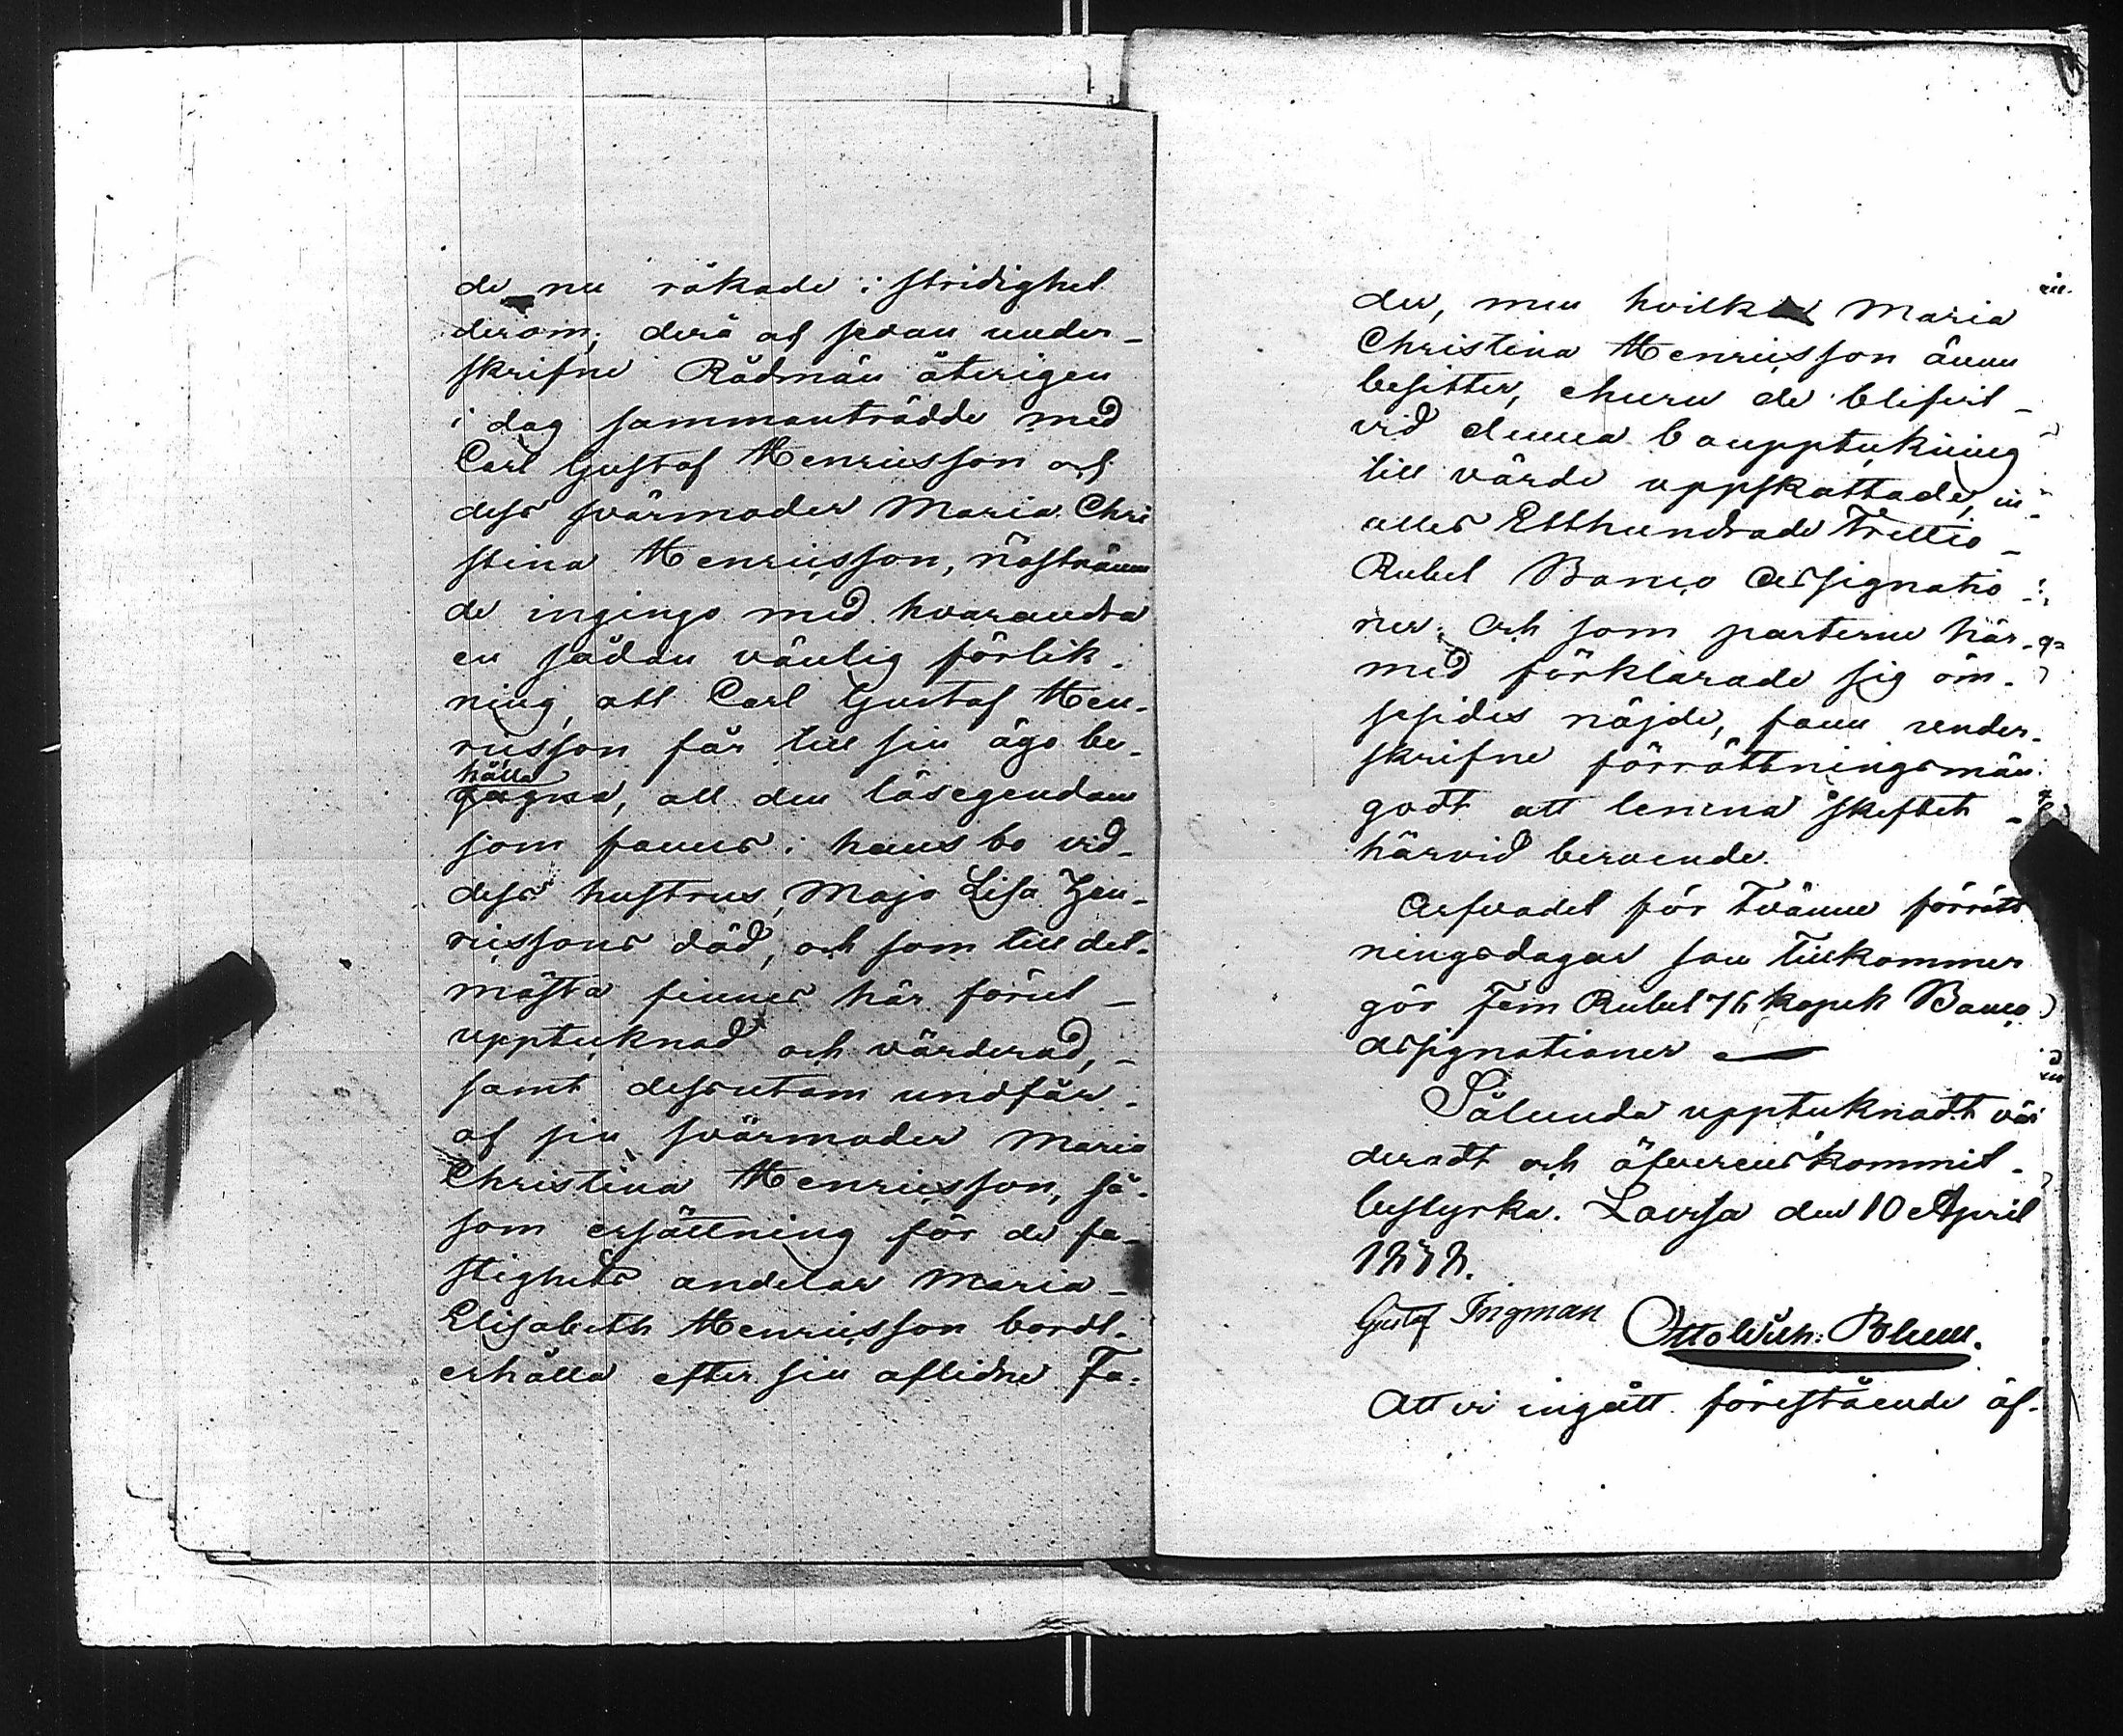 de nu råkade i stridighet
derom; derå af sedan under-
skrifne Rådmän återigen
i dag sammanträdde med
Carl Gustaf Henricsson och
dess svärmoder Maria Chri
stina Henricsson,
de ingingo med hvarandra
en sådan vänlig förlik-
ning, att Carl Gustaf Hen-
ricsson får till sin ägo be-
hålla
all den lösegendom
som fanns i hans bo vid
dess hustrus, Maja Lisa Hen-
ricssons död, och som till det-
mästa finnes här förut
upptecknad och värderad,
samt dessutom undfår
af sin svärmoder Maria
Christina Henricsson, så-
som ersättning för de fa-
stighets andelar Maria
Elisabeth Henricsson bordt
erhålla efter sin aflidne Fa-
der, men hvilka Maria
Christina Henricsson ännu
besitter, ehuru de blifvit
vid denna bouppteckning
till värde uppskattade, in
alles Etthundrade Trettio
Rubel Banco Assignatio-
ner; Och som parterne här-
med förklarade sig öm-
sesides nöjde, funn under-
skrifne förrättningsmän
godt att lemna skiftet
härvid beroende.
Arfvodet för tvänne förrätt
ningsdagar som tillkommer
gör Fem Rubel 76 kopek Banco
Assignationer
Sålunda upptecknadt vär
deradt och äfverenskommit
bestyrka. Lovisa den 10 April
1838.
Gustaf Ingman Otto Wilh: Blum.
Att vi ingått förestående äf-